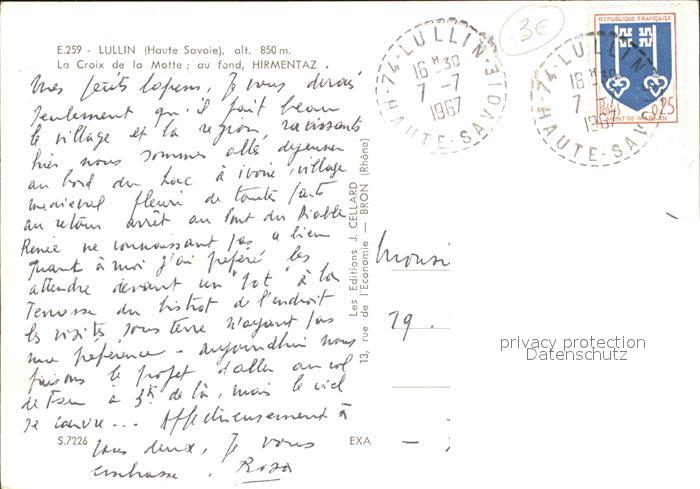 E.259 - LULLIN (Haute Savoie), alt. 850 m.
La Croix de la Motte ; au fond, HIRMENTAZ .
Mes petits lapins, Je vous dirais
seulement qu'il fait beau
le village et la region, ravissants
hier nous sommes allés déjeuner
au bord du Lac à ivoire, village
medieval fleuri de toutes parts
au retour arrêt au Pont du Diable
Renée ne connaissant pas ce lieu
Quant à moi j'ai préféré les
attendre devant un "pot" à la
Terrasse du bistrot de l'endroit
les visites sous terre n'ayant pas
ma préférence - aujourdhui nous
faisons le projet d'aller au col
de à 3k de là, mais le ciel
se couvre... Affectueusement à
vous deux, Je vous
embrasse. Rosa
S.7226
EXA
Les Editions J. CELLARD
13, rue de l'Economie — BRON (Rhône)
H-74-LULLIN
16 H 30
7 - 7
1967
HAUTE-SAVOIE
3€
REPUBLIQUE FRANÇAISE
0,25
MONT-DE-MARSAN
H-74-LULLIN
16 H 30
7
1967
HAUTE-SAVOIE
Monsi
19.
privacy protection
Datenschutz